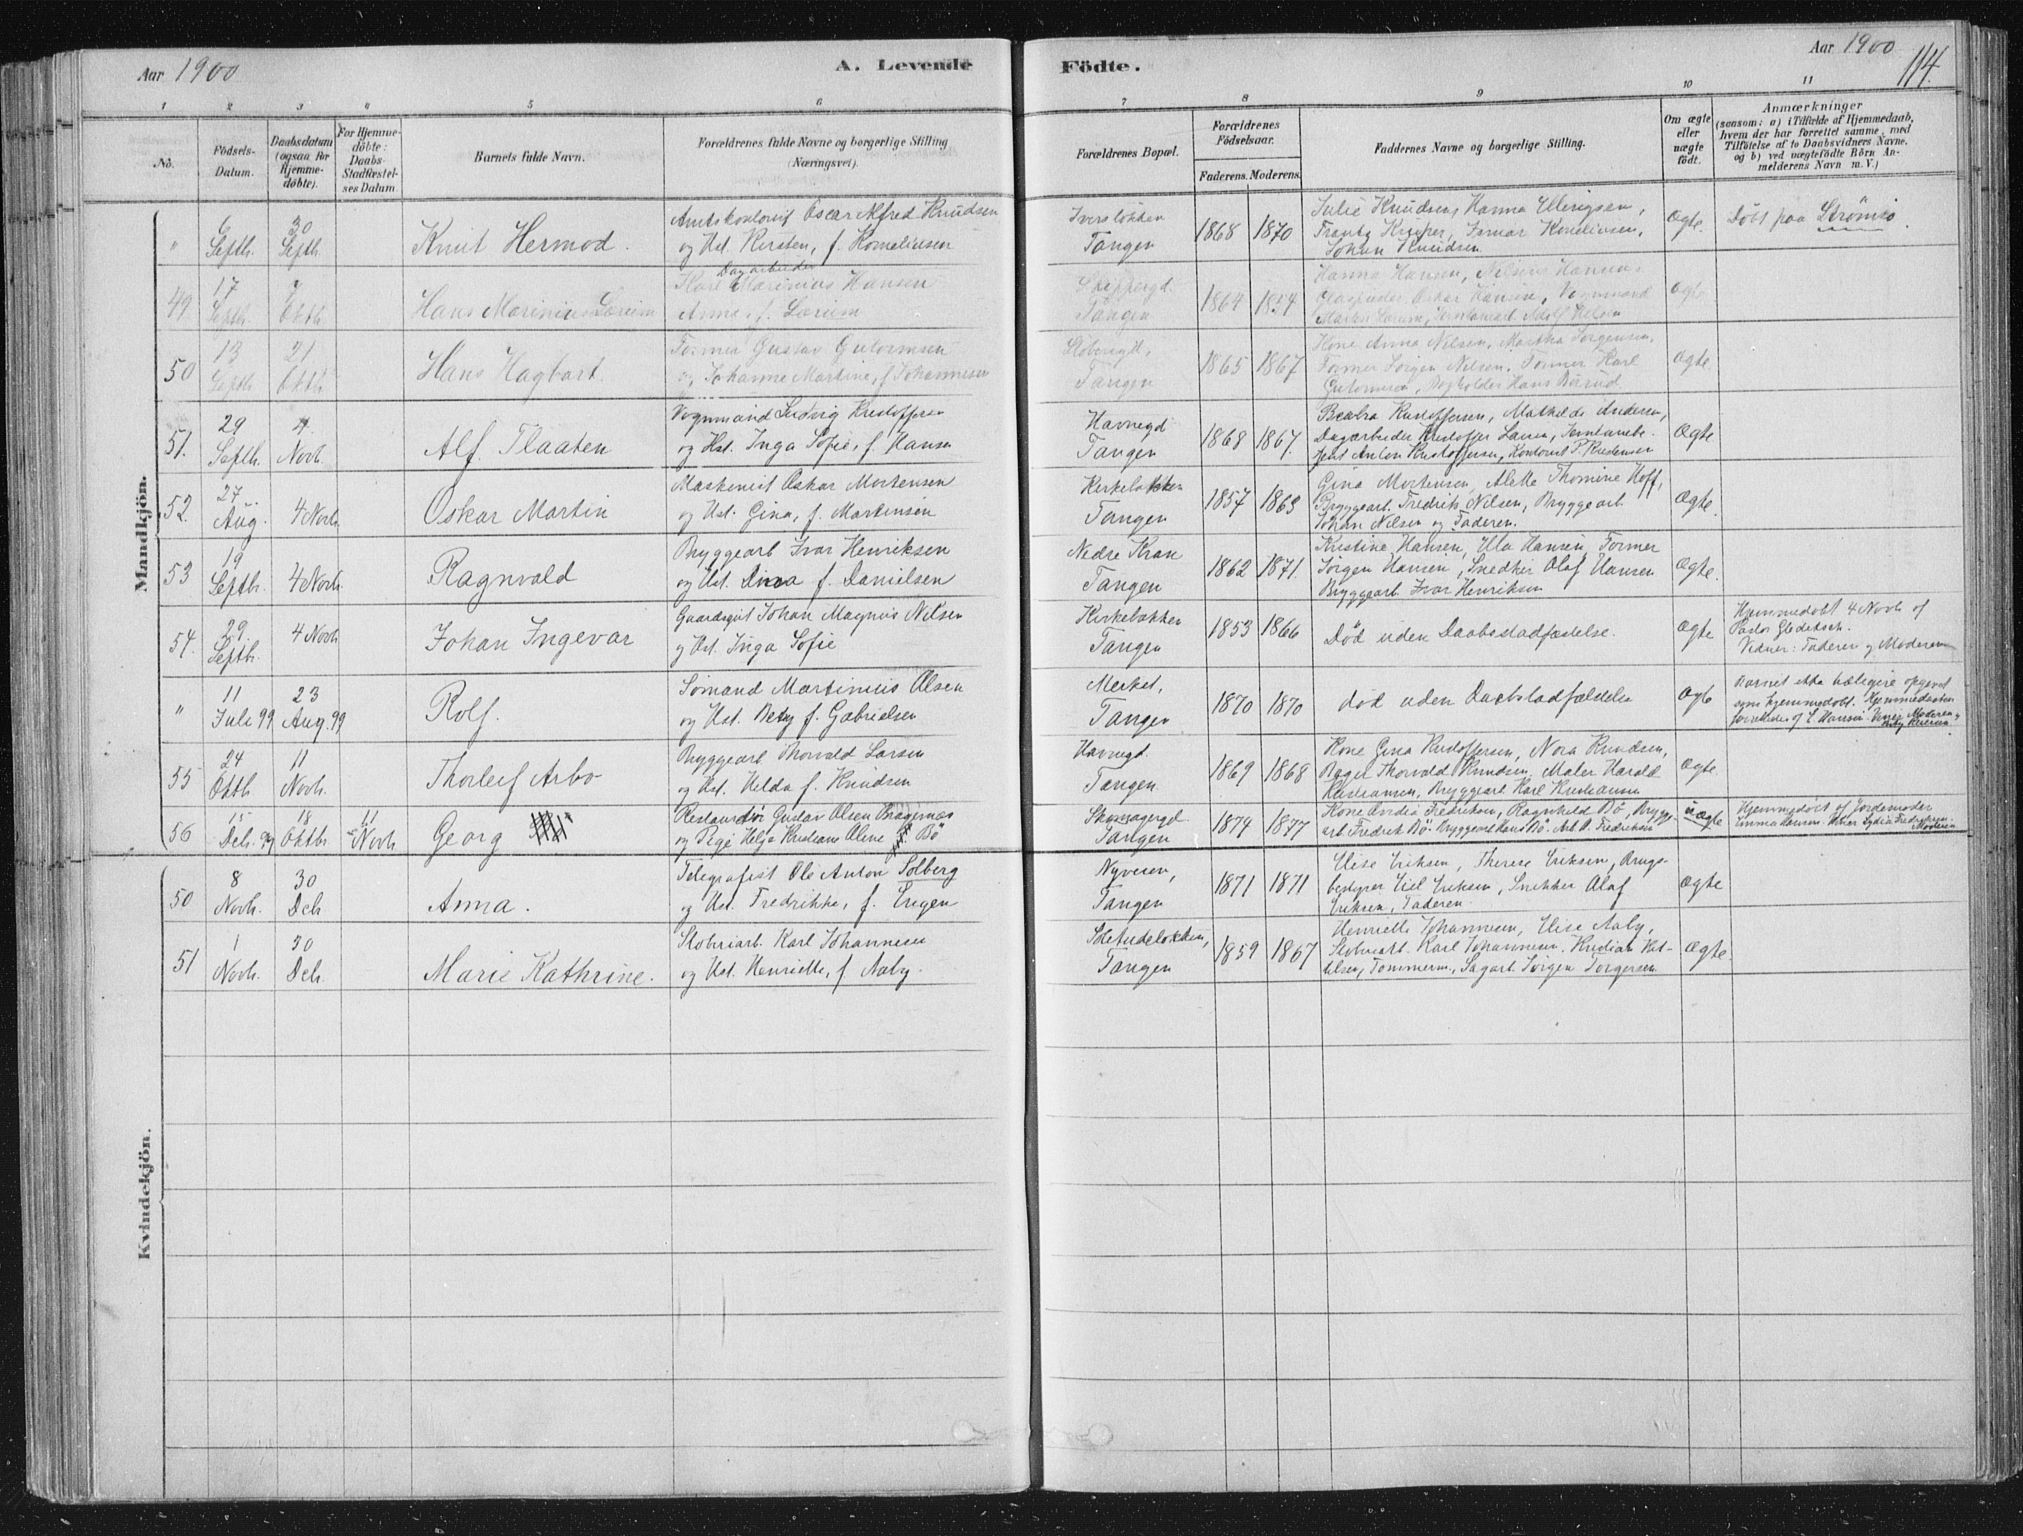 Aar 1900
A. Levende Födte.
Aar 1900
114.
1 2 3 4 5 6 7 8 9 10 11
No.
Födsels-Datum.
Daabsdatum (ogsaa for Hjemmedöbte).
For Hjemmedöbte: Daabs-Stadfæstelses Datum
Barnets fulde Navn.
Forældrenes fulde Navne og borgerlige Stilling (Næringsvei).
Forældrenes Bopæl.
Forældrenes Födselsaar.
Faderens. Moderens.
Faddernes Navne og borgerlige Stilling.
Om ægte eller uægte födt.
Anmærkninger
(saasom: a) i Tilfælde af Hjemmedaab, hvem der har forrettet samme, med Tilföielse af to Daabsvidners Navne. og b) ved uægtefödte Börn Anmelderens Navn m. V.)
Mandkjön.
" 6 Septb. 30 Septb. Knut Hermod.
Amtskontorist Oscar Alfred Knudsen
og Hst. Kirsten, f. Korneliusen
Iversløkken
Tangen
1868 1870
Julie Knudsen, Hanna Ellingsen,
Frantz Krüger, Ismar Korneliusen,
Johan Knudsen
Ægte.
Døbt paa Strømsø.
49 17 Septb. 7 Oktb. Hans Marinius Lærum
Dagarbeider
Karl Marinius Hansen
Anna, f. Lærum
Skippergd.
Tangen
1864 1854
Hanna Hansen, Nilsine Hansen
Oskar Hansen, Vognmand
Martin Lærum, Adolf Nilsen
Ægte
50 13 Septb. 21 Oktb. Hans Hagbart.
Former Gustav Gutormsen
og Johanne Martine, f. Johannesen
Støberigdt.
Tangen
1865 1867
Kone Anna Nilsen, Martha Jørgensen,
Former Jørgen Nilsen, Former Karl
Gutormsen, Bogholder Hans Børrud.
Ægte.
51. 29 Septb. 4. Novb. Alf. Flaaten
Vognmand Ludvig Kristoffersen
og Hst. Inga Sofie, f. Hansen
Havnegd
Tangen
1868 1867.
Kristoffersen, Mathilde Andersen,
Dagarbeider Kristoffer Larsen, Jerntanebe-
tjent Anton Kristoffersen, Kontorist P. Kristensen
Ægte
52. 27 Aug. 4 Novb. Oskar Martin
Maskinist Oskar Mortensen
og Hst. Gina, f. Martinsen
Kirkeløkken
Tangen
1857 1863
Gina Mortensen, Alette Thomine Hoff,
Bryggearb. Fredrik Nilsen, Bryggearb.
Johan Nilsen og Faderen.
Ægte.
53 19 Septbr. 4 Novb. Ragnvald
Bryggearb Ivar Henriksen
og Hst. Dina f. Danielsen
Nedre Kran
Tangen
1862 1871.
Kristine Hansen, Ula Hansen, Former
Jørgen Hansen, Snedker Olaf Hansen
Bryggearb. Ivar Henriksen
Ægte.
54. 29 Septb. 4 Novb Johan Ingevar
Gaardsgut Johan Magnus Nilsen
og Hst. Inga Sofie
Kirkeløkken
Tangen
1853 1866
Død uden Daabsstadfæstelse.
Ægte
Hjemmedøbt 4 Novb af
Pastor Gleditsch.
Vidner: Faderen og Moderen
" 11 Juli 99 23 Aug. 99 Rolf.
Sømand Martinius Olsen
og Hst. Betzy f. Gabrielsen
Merket,
Tangen
1870 1870
død uden Daabstadfæstelse
Ægte
Barnet opgivet
som hjemmedøbt. Hjemmedaaben
forrettedes af L. Hansen. Moderen og
55 24 Oktb. 11 Novb. Thorleif Arbo
Bryggearb Thorvald Larsen
og Hst. Helda f. Knudsen
Havnegd.
Tangen.
1869 1868
Kone Gina Kristoffersen, Nora Knudsen,
Bager Thorvald Knudsen, Maler Harald
Kristiansen, Bryggearb Karl Kristiansen
Ægte.
56 15 Deb. 99 18 Oktbr 11 Novb. Georg
Restauratør Gustav Olsen Bragernæs
og Pige Helga Kristiane Oline Bø
Skomagergd
Tangen
1874 1877
Kone Lydia Fredriksen, Ragnhild Bø, Brygge-
arb Fredrik Bø, Bryggearb Hans Bø. Arb. A. Fredriksen
uægte
Hjemmedøbt af Jordemoder
Emma Hansen. Vidner Lydia Fredriksen.
Moderen
Kvindekjön.
50 8 Novb. 30 Deb Anna.
Telegrafist Ole Anton Solberg
og Hst. Fredrikke, f. Engen
Nyveien,
Tangen
1871 1871
Elise Eriksen, Therese Eriksen, Brugs-
bestyrer Eriksen, Snikker Olaf
Eriksen, Faderen.
Ægte
51 1 Novb. 30 Deb. Marie Kathrine.
Støberiarb. Karl Johannesen
og Hst. Henriette, f. Aaby.
Tangen
1859 1867
Henriette Johannesen, Elise Aaby,
Støberiarb. Karl Johannesen, Kristian Ket-
telsen, Tømmerm., Sagarb. Jørgen Torgersen
Ægte